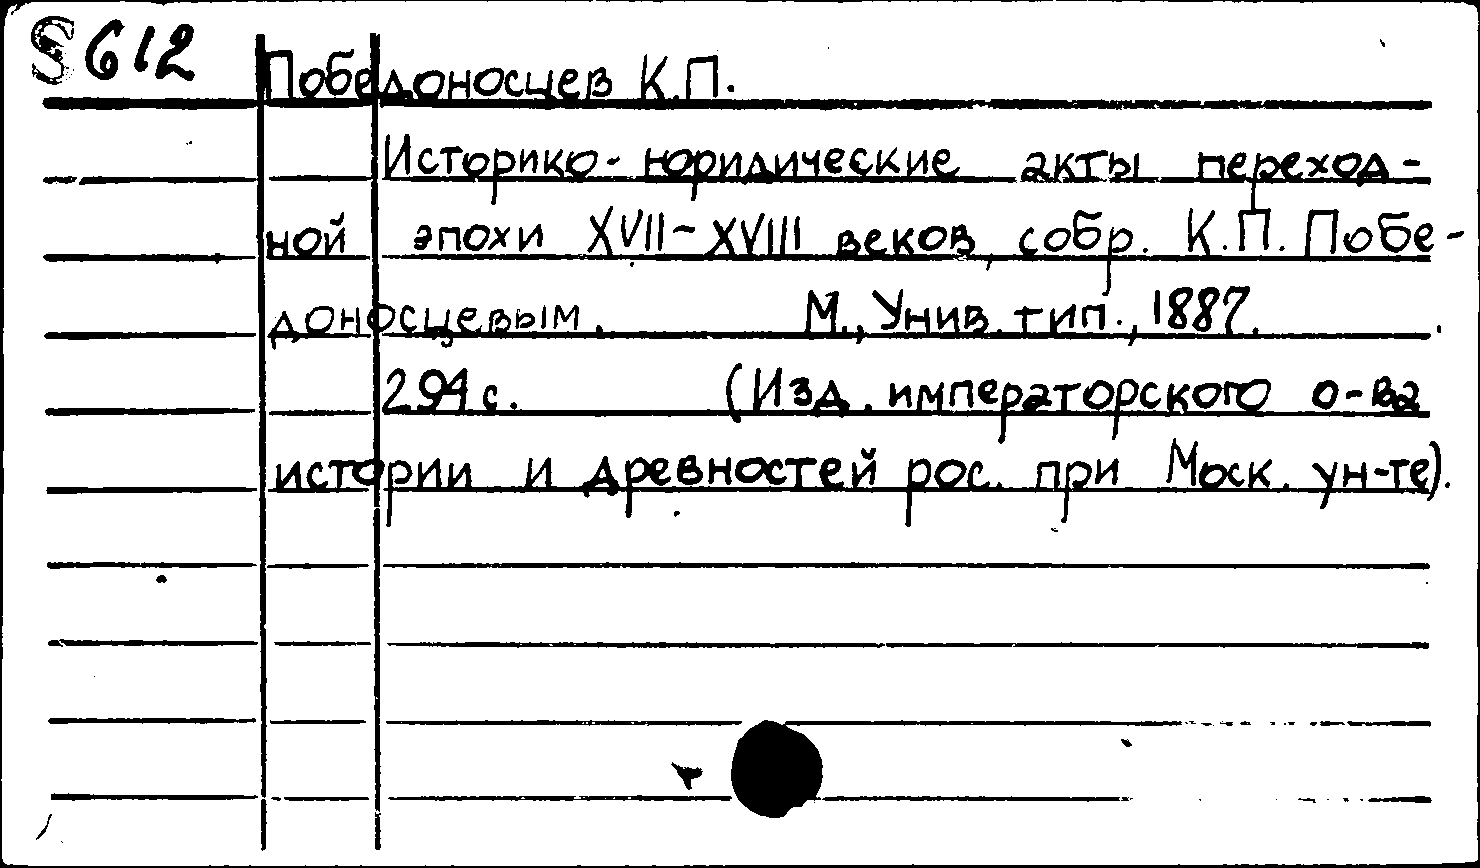 S 612
Победоносцев К.П.
Историко-юридические акты переход-
ной эпохи XVII-XVIII веков, собр. К.П. Побе-
доносцевым. М., Унив. тип., 1887.
294 с. (Изд. императорского о-ва
истории и древностей рос. при Моск. ун-те).